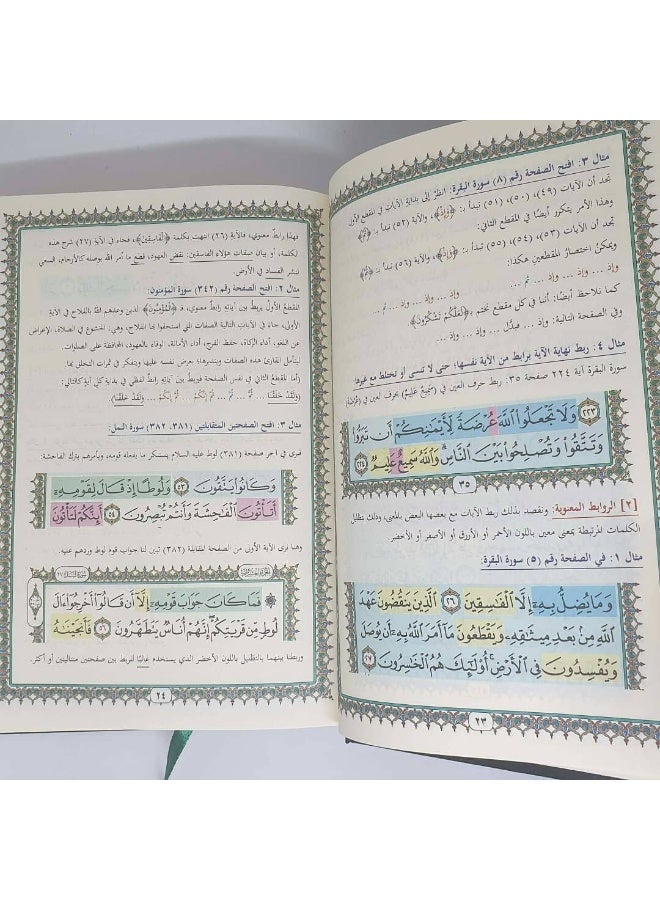 مثال ٣: افتح الصفحة رقم (٨) سورة البقرة: انظر إلى بداية الآيات في المقطع الأول
تجد أن الآيات (٤٩)، (٥٠)، (٥١) تبدأ بـ: ﴿وَإِذْ﴾، والآية (٥٢) تبدأ بـ: ﴿ثُمَّ﴾
وهذا الأمر يتكرر أيضًا في المقطع الثاني:
تجد أن الآيات (٥٣)، (٥٤)، (٥٥) تبدأ بـ: ﴿وَإِذْ﴾، والآية (٥٦) تبدأ بـ: ﴿ثُمَّ﴾
ويمكن اختصار المقطعين هكذا:
وإذ ... وإذ ... وإذ ... ثم ...
وإذ ... وإذ ... وإذ ... ثم ...
كما نلاحظ أيضًا: أننا في كل مقطع نختم بـ ﴿لَعَلَّكُمْ تَشْكُرُونَ﴾
وفي الصفحة التالية: وإذ ... فبدَّل ... وإذ ... وإذ ...
مثال ٤: ربط نهاية الآية برابط من الآية نفسها؛ حتى لا تنسى أو تختلط مع غيرها:
سورة البقرة آية ٢٢٤ صفحة ٣٥: ربط حرف العين في ﴿سَمِيعٌ عَلِيمٌ﴾ بحرف العين في ﴿عُرْضَةً﴾
٢٢٣ وَلَا تَجْعَلُوا۟ ٱللَّهَ عُرْضَةً لِّأَيْمَـٰنِكُمْ أَن تَبَرُّوا۟
وَتَتَّقُوا۟ وَتُصْلِحُوا۟ بَيْنَ ٱلنَّاسِ ۗ وَٱللَّهُ سَمِيعٌ عَلِيمٌ ٢٢٤
٣٥
[٢] الروابط المعنوية: ونقصد بذلك ربط الآيات مع بعضها البعض بالمعنى، وذلك بتظليل
الكلمات المرتبطة بمعنى معين باللون الأحمر أو الأزرق أو الأصفر أو الأخضر
مثال ١: في الصفحة رقم (٥) سورة البقرة:
وَمَا يُضِلُّ بِهِۦٓ إِلَّا ٱلْفَـٰسِقِينَ ٢٦ ٱلَّذِينَ يَنقُضُونَ عَهْدَ
ٱللَّهِ مِنۢ بَعْدِ مِيثَـٰقِهِۦ وَيَقْطَعُونَ مَآ أَمَرَ ٱللَّهُ بِهِۦٓ أَن يُوصَلَ
وَيُفْسِدُونَ فِى ٱلْأَرْضِ ۚ أُو۟لَـٰٓئِكَ هُمُ ٱلْخَـٰسِرُونَ ٢٧
٢٣
فهذا رابط معنوي، فالآية (٢٦) انتهت بكلمة ﴿ٱلْفَـٰسِقِينَ﴾، فجاء في الآية (٢٧) شرح هذه
الكلمة، أو بيان صفات هؤلاء الفاسقين: نقض العهود، قطع ما أمر الله بوصله كالأرحام، السعي
لنشر الفساد في الأرض.
مثال ٢: افتح الصفحة رقم (٣٤٢) سورة المؤمنون:
المقطع الأول يربط بين آياته رابط معنوي، فـ ﴿ٱلْمُؤْمِنُونَ﴾ الذين وعدهم الله بالفلاح في الآية
الأولى، جاء في الآيات التالية الصفات التي استحقوا بها الفلاح، وهي: الخشوع في الصلاة، الإعراض
عن اللغو، أداء الزكاة، حفظ الفرج، أداء الأمانة، الوفاء بالعهود، المحافظة على الصلوات.
ليتأمل القارئ هذه الصفات ويتدبرها؛ بعرض نفسه عليها ويتفكر في تمثله لكل صفة منها.
أما المقطع الثاني في نفس الصفحة فيربط بين آياته رابط لفظي في بداية كل آية كالتالي:
﴿وَلَقَدْ خَلَقْنَا ... ثُمَّ ... ثُمَّ ... ثُمَّ إِنَّكُم ... ثُمَّ إِنَّكُمْ ... وَلَقَدْ خَلَقْنَا﴾
مثال ٣: افتح الصفحتين المتقابلتين (٣٨١، ٣٨٢) سورة النمل:
فنرى في آخر صفحة (٣٨١) لوط عليه السلام يستنكر ما يفعله قومه، ويأمرهم بترك الفاحشة:
وَكَانُوا۟ يَتَّقُونَ ٥٣ وَلُوطًا إِذْ قَالَ لِقَوْمِهِۦٓ
أَتَأْتُونَ ٱلْفَـٰحِشَةَ وَأَنتُمْ تُبْصِرُونَ ٥٤ أَئِنَّكُمْ لَتَأْتُونَ
وهنا نرى الآية الأولى من الصفحة المقابلة (٣٨٢) تبين لنا جواب قوم لوط وردهم عليه.
فَمَا كَانَ جَوَابَ قَوْمِهِۦٓ إِلَّآ أَن قَالُوٓا۟ أَخْرِجُوٓا۟ ءَالَ
لُوطٍ مِّن قَرْيَتِكُمْ ۖ إِنَّهُمْ أُنَاسٌ يَتَطَهَّرُونَ ٥٦ فَأَنجَيْنَـٰهُ
وربطنا بينهما بالتظليل باللون الأخضر الذي يستخدم غالبًا للربط بين صفحتين متتاليتين أو أكثر.
٢٤